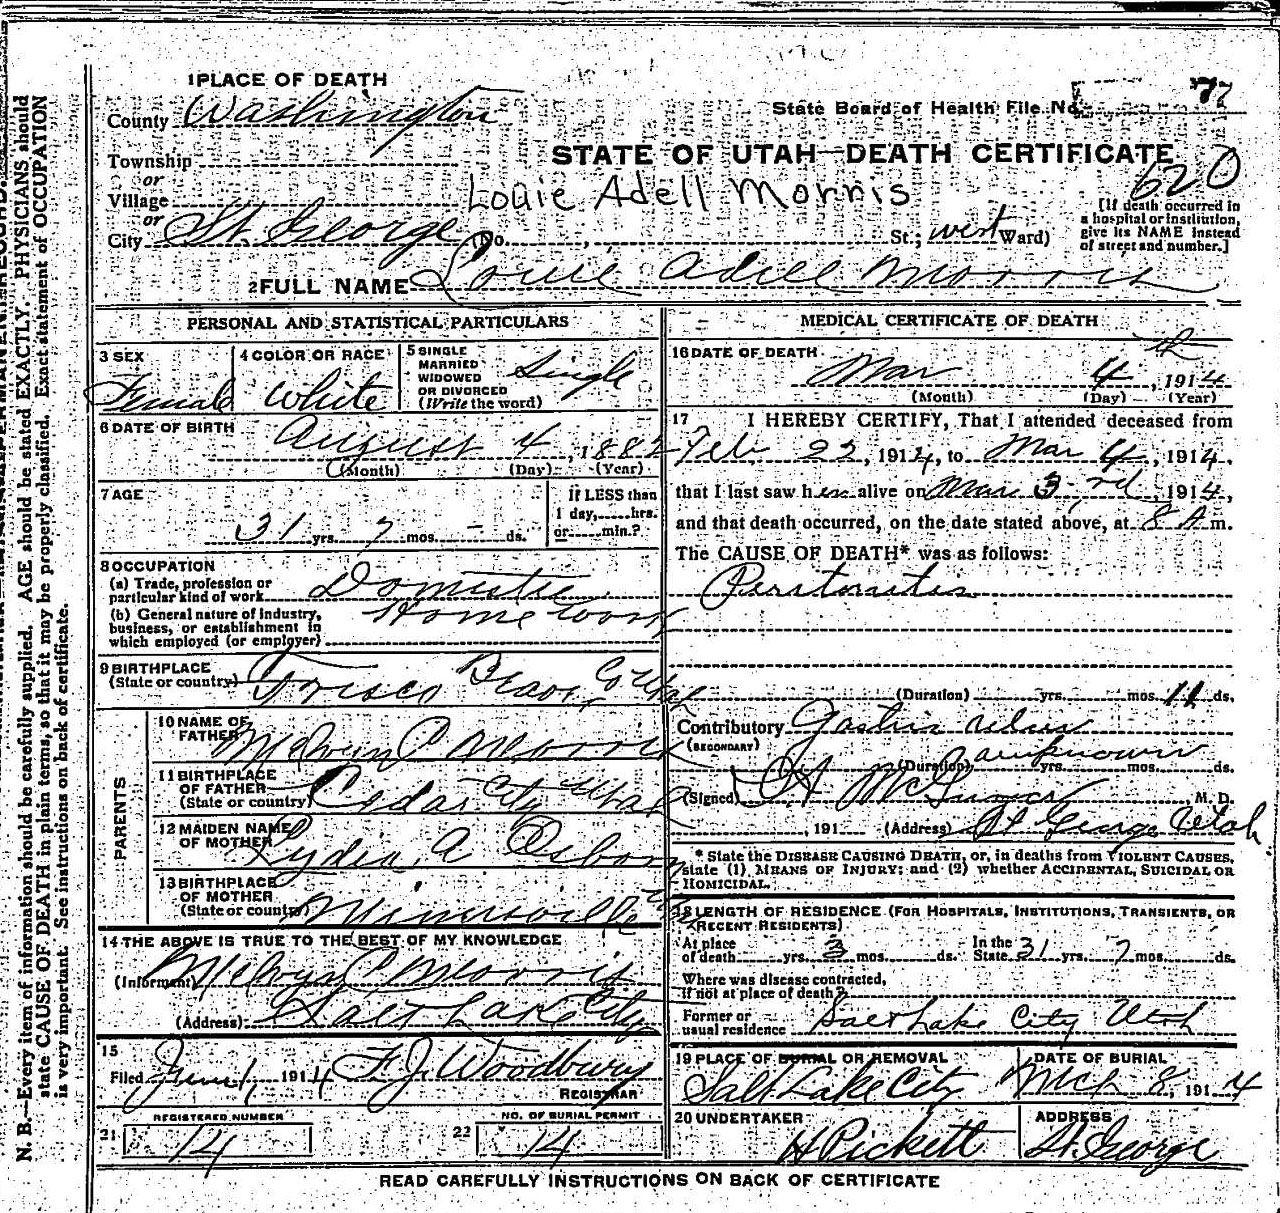 1 PLACE OF DEATH
County Washington
State Board of Health File No. 77
Township
or
Village
or
City St. George (No. , St.; west Ward)
STATE OF UTAH—DEATH CERTIFICATE
620
Louie Adell Morris
[If death occurred in
a hospital or institution,
give its NAME instead
of street and number.]
2 FULL NAME Louie Adell Morris
PERSONAL AND STATISTICAL PARTICULARS
3 SEX Female
4 COLOR OR RACE White
5 SINGLE
MARRIED
WIDOWED
OR DIVORCED
(Write the word)
Single
6 DATE OF BIRTH August 4, 1882
(Month) (Day) (Year)
7 AGE
31 yrs. 7 mos. - ds.
If LESS than
1 day, hrs.
or min.?
8 OCCUPATION
(a) Trade, profession or
particular kind of work Domestic
(b) General nature of industry,
business, or establishment in
which employed (or employer)
Home Work
9 BIRTHPLACE
(State or country) Frisco Beaver Co Utah
PARENTS
10 NAME OF
FATHER Melvin C Morris
11 BIRTHPLACE
OF FATHER
(State or country) Cedar City Utah
12 MAIDEN NAME
OF MOTHER Lydia A Osborn
13 BIRTHPLACE
OF MOTHER
(State or country) Minersville
14 THE ABOVE IS TRUE TO THE BEST OF MY KNOWLEDGE
(Informant) Melvyn C Morris
(Address) Salt Lake City
15
Filed June 1, 1914 F. J. Woodbury
REGISTRAR
REGISTERED NUMBER
21 14
NO. OF BURIAL PERMIT
22 14
MEDICAL CERTIFICATE OF DEATH
16 DATE OF DEATH
Mar 4th, 1914
(Month) (Day) (Year)
17 I HEREBY CERTIFY, That I attended deceased from
Feb 22, 1914, to Mar 4, 1914,
that I last saw her alive on Mar 3rd, 1914,
and that death occurred, on the date stated above, at 8 A m.
The CAUSE OF DEATH* was as follows:
Peritonitis
(Duration) yrs. mos. 11 ds.
Contributory Gastric ulcer
(SECONDARY)
(Duration) unknown yrs. mos. ds.
(Signed) M. D.
, 191 (Address) St George Utah
* State the DISEASE CAUSING DEATH, or, in deaths from VIOLENT CAUSES,
state (1) MEANS OF INJURY; and (2) whether ACCIDENTAL, SUICIDAL OR
HOMICIDAL.
18 LENGTH OF RESIDENCE (FOR HOSPITALS, INSTITUTIONS, TRANSIENTS, OR
RECENT RESIDENTS)
At place
of death yrs. 3 mos. ds.
In the
State 31 yrs. 7 mos. ds.
Where was disease contracted,
if not at place of death?
Former or
usual residence Salt Lake City Utah
19 PLACE OF BURIAL OR REMOVAL
Salt Lake City
DATE OF BURIAL
Mch 8, 1914
20 UNDERTAKER
H Pickett
ADDRESS
St. George
READ CAREFULLY INSTRUCTIONS ON BACK OF CERTIFICATE
N. B.—Every item of information should be carefully supplied. AGE should be stated EXACTLY. PHYSICIANS should
state CAUSE OF DEATH in plain terms, so that it may be properly classified. Exact statement of OCCUPATION
is very important. See instructions on back of certificate.